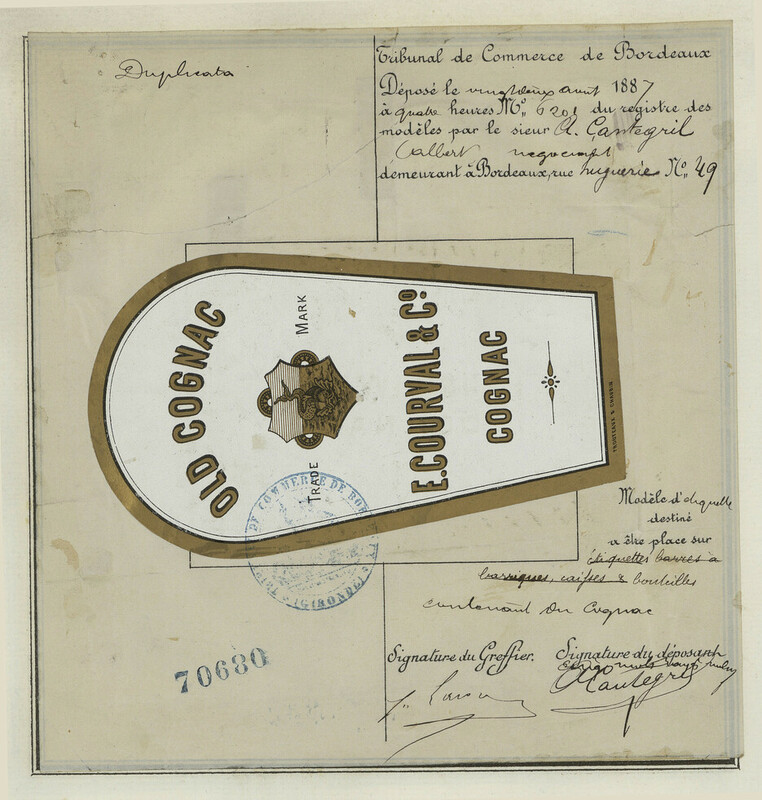 Duplicata
Tribunal de Commerce de Bordeaux
Déposé le vingt deux aout 1887
à quatre heures Nº 6201 du registre des
modèles par le sieur A. Cantegril
(Albert negociant
demeurant à Bordeaux, rue huguerie Nº 49
OLD COGNAC
TRADE MARK
E. COURVAL & Cº
COGNAC
Modèle d'etiquette
destiné
a être place sur
étiquettes barres a
barriques, caisses & bouteilles
contenant du Cognac
COMMERCE DE BORDEAUX
(GIRONDE)
70680
Signature du Greffier.
Signature du déposant
Cinq mots rayés nuls
A Cantegril